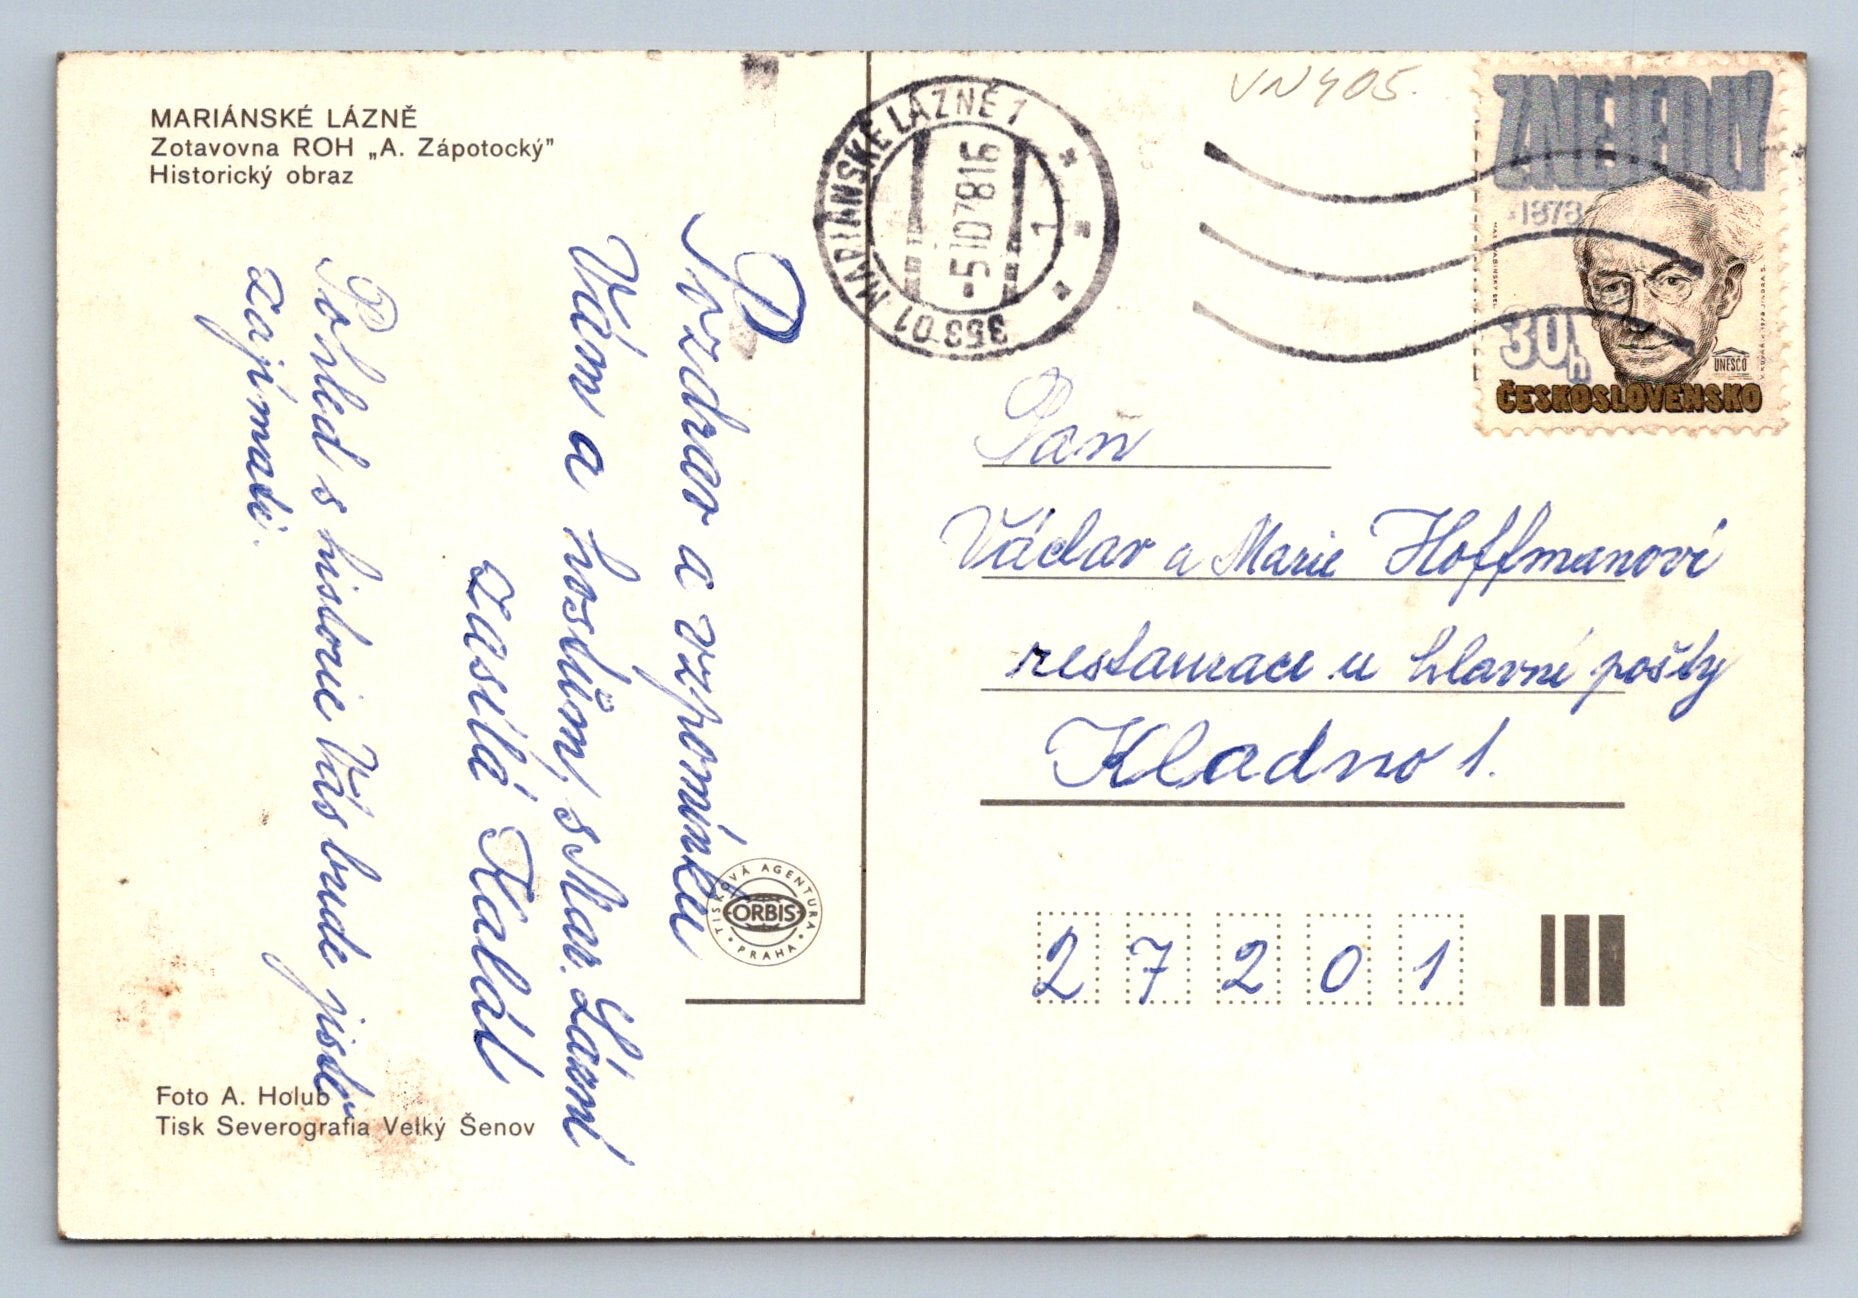 MARIÁNSKÉ LÁZNĚ
Zotavovna ROH „A. Zápotocký"
Historický obraz
Pozdrav a vzpomínku
Vám a hostům, s Mar. Lázní
zasílá Kalál
Pohled s historie Vás bude jistě
zajímati.
Foto A. Holub
Tisk Severografia Velký Šenov
TISKOVÁ AGENTURA • PRAHA •
ORBIS
MARIÁNSKÉ LÁZNĚ 1
-5.10.78 16
1
353 01
VN405.
ZNEJEDLÝ
*1878
30h
UNESCO
ČESKOSLOVENSKO
Paní
Václav a Marie Hoffmanovi
restaurace u hlavní pošty
Kladno 1.
27201